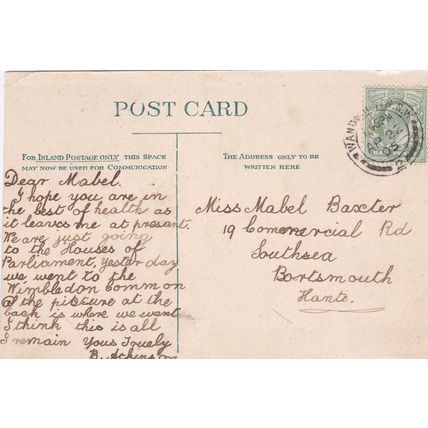 POST CARD
FOR INLAND POSTAGE ONLY THIS SPACE
MAY NOW BE USED FOR COMMUNICATION
THE ADDRESS ONLY TO BE
WRITTEN HERE
Dear Mabel.
I hope you are in
the best of health as
it leaves me at present.
We are just going
to the Houses of
Parliament, yester day
we went to the
Wimbledon Common
the picture at the
back is where we went
I think this is all
I remain Yous Truely
B.
Miss Mabel Baxter
19 Comercial Rd
Southsea
Portsmouth
Hants.